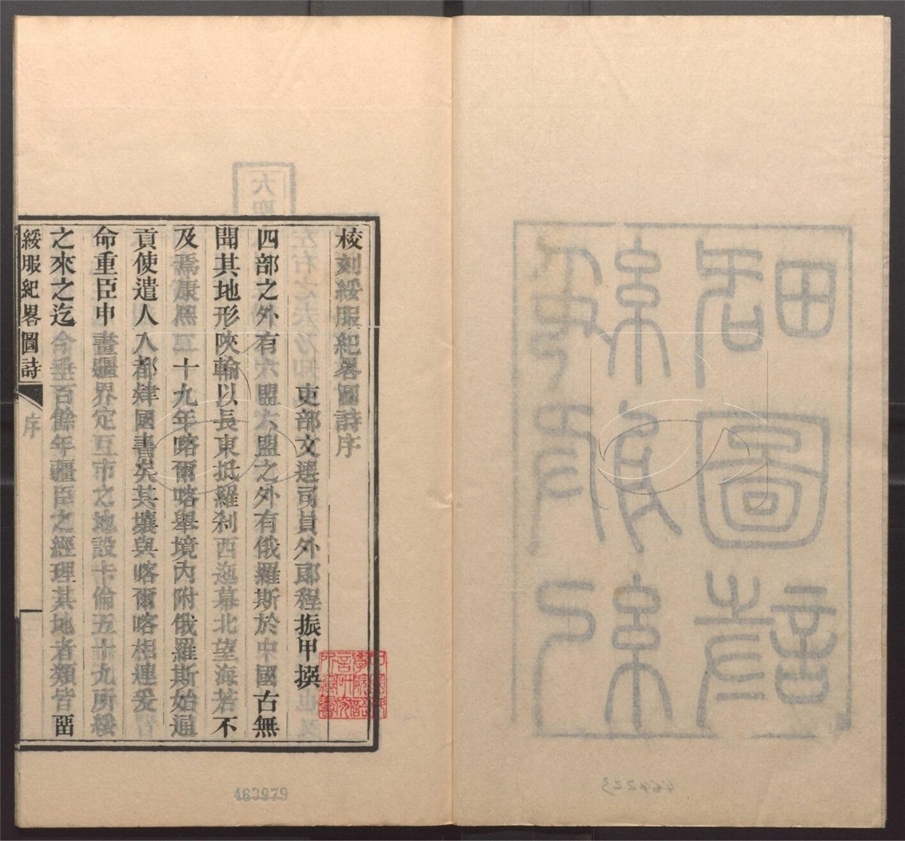 校刻綏服紀畧圖詩序
吏部文選司員外郎程振甲撰
四部之外有六盟六盟之外有俄羅斯於中國古無
聞其地形陜輪以長東抵羅刹西迤幕北望海若不
及焉康熙二十九年喀爾喀舉境內附俄羅斯始通
貢使遣人入都肄國書矣其壤與喀爾喀相連爰
命重臣申畫疆界定互市之地設卡倫五十九所綏
之來之迄今垂百餘年疆臣之經理其地者類皆畱
綏服紀畧圖詩 序
463979
464223